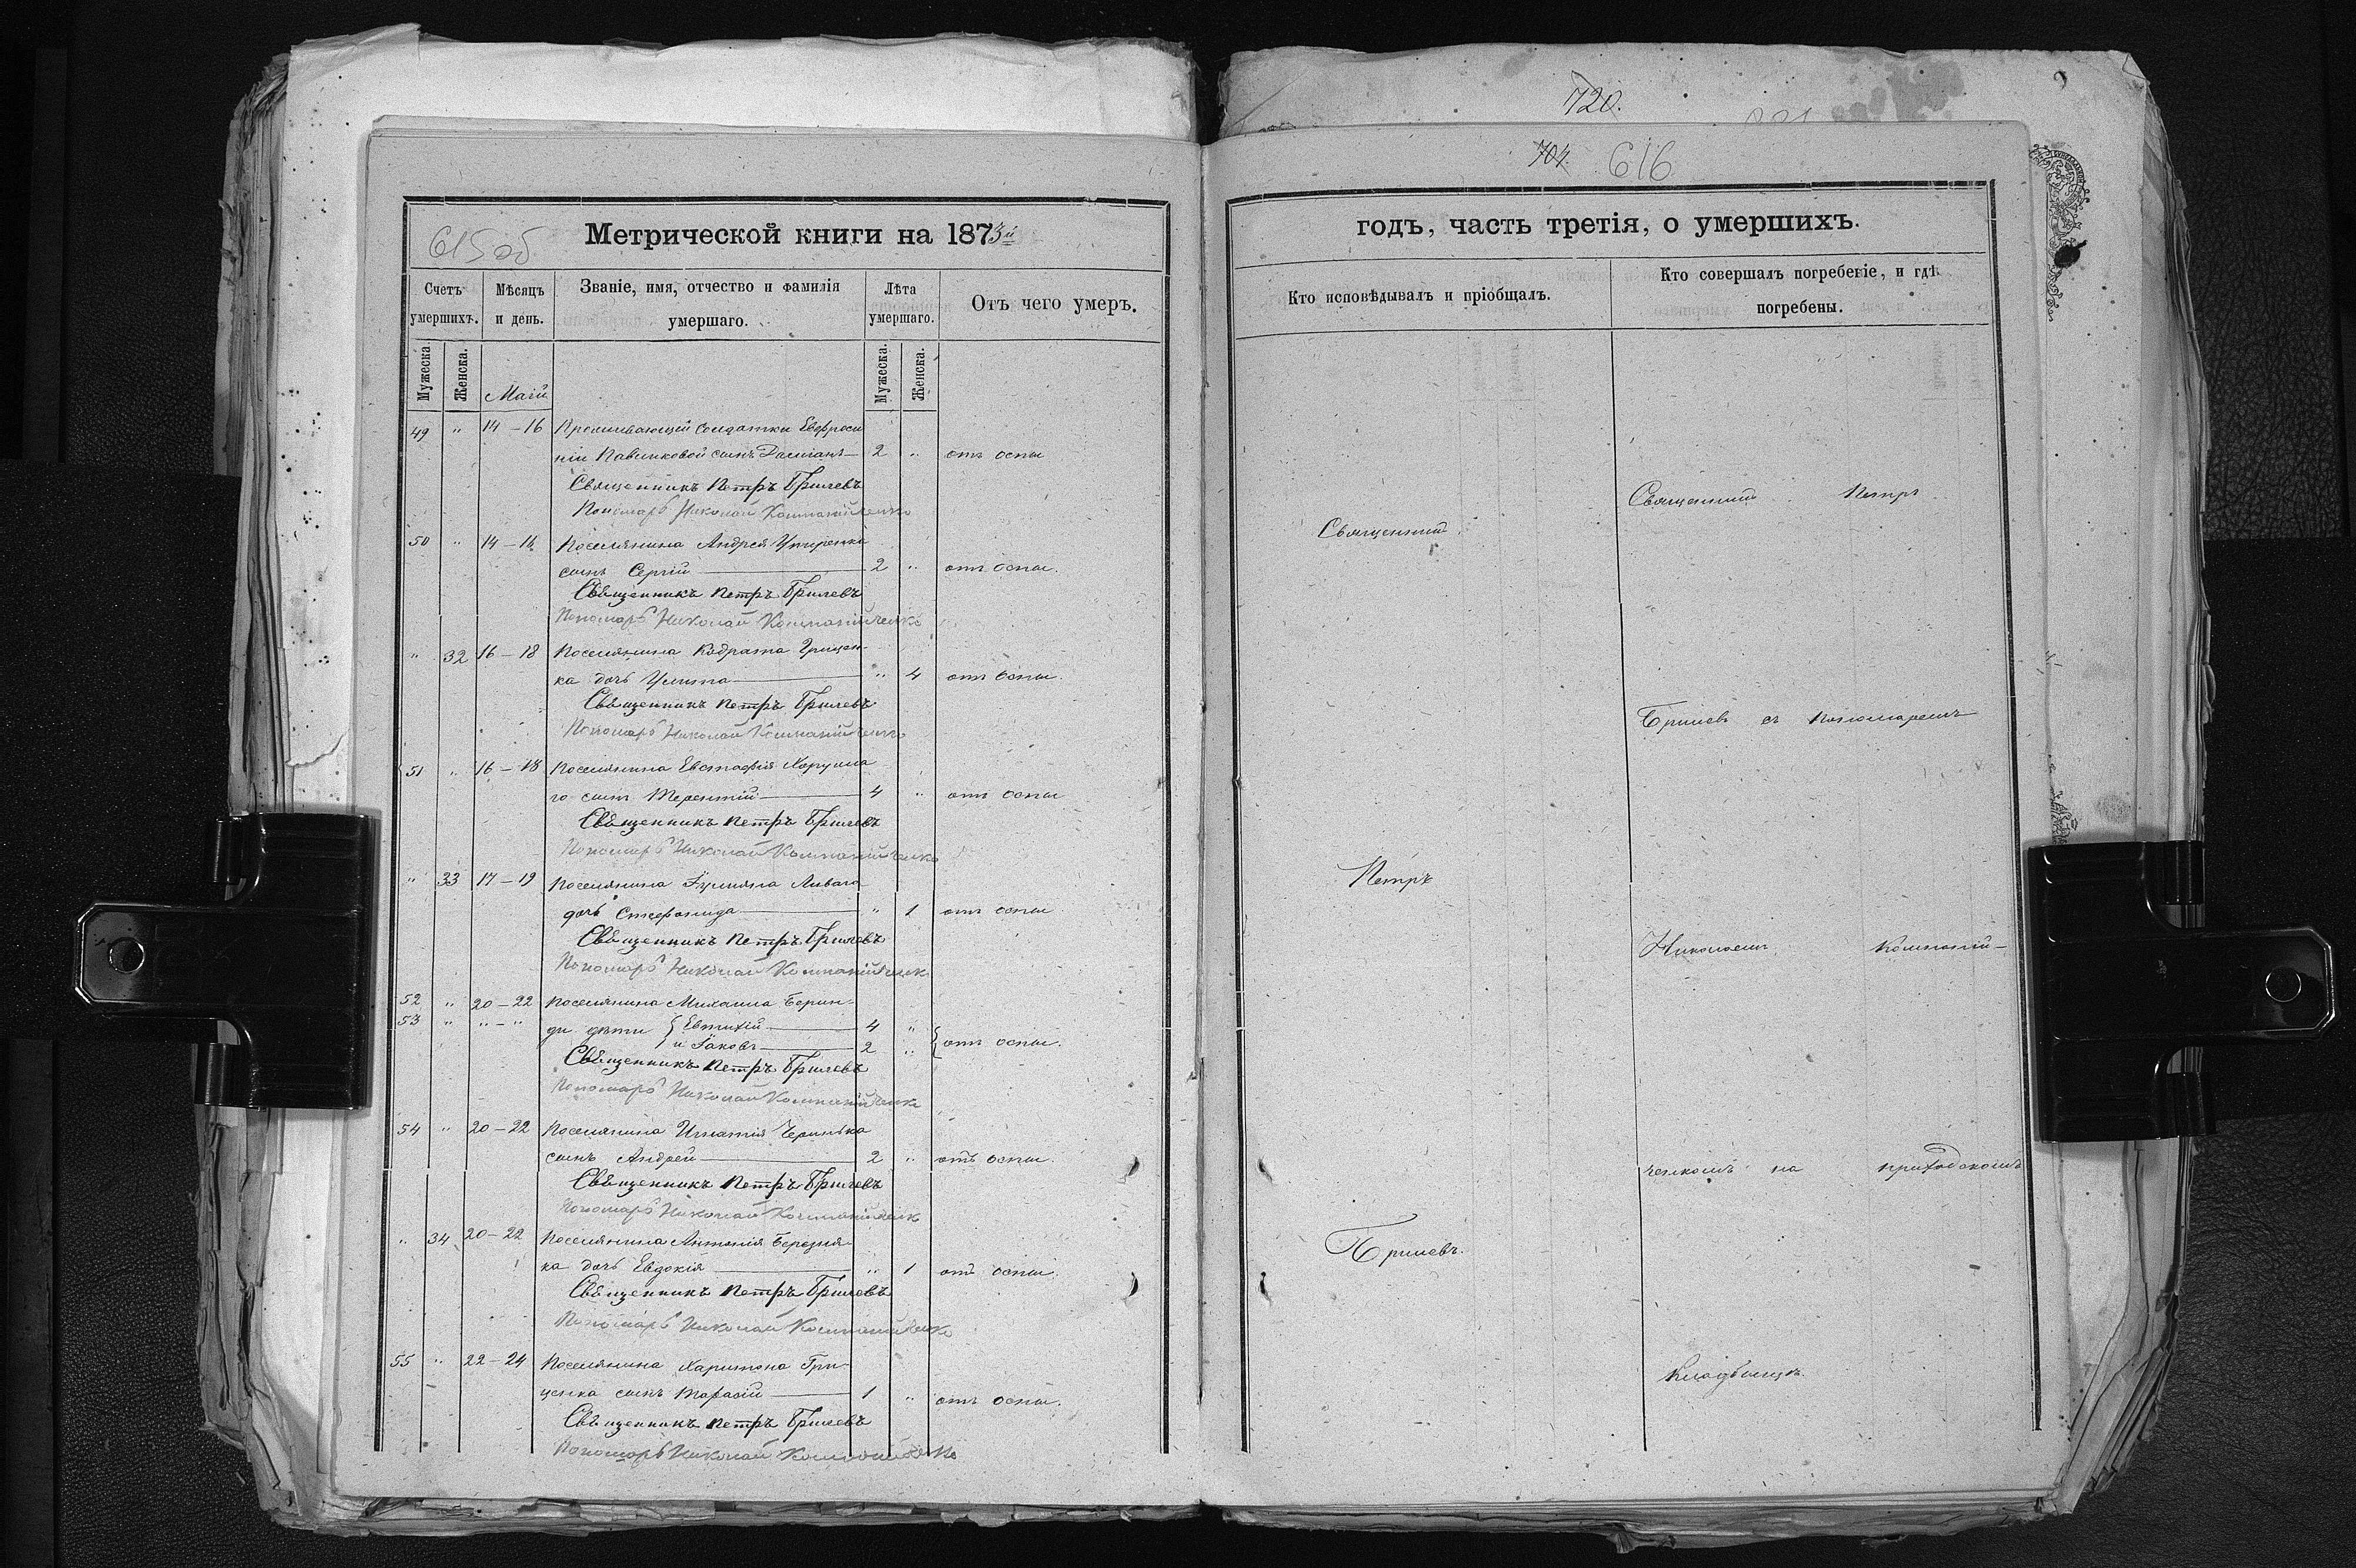 615об.
Метрической книги на 1873й
Счетъ умершихъ.
Мѣсяцъ и день.
Званіе, имя, отчество и фамилія умершаго.
Лѣта умершаго.
Отъ чего умеръ.
Мужеска.
Женска.
Маій
Мужеска.
Женска.
49 " 14–16 Проживающей солдатки Евфроси
ніи Павленковой сынъ Даміанъ 2 " отъ оспы
Священникъ Петръ Брилевъ
Пономарь Николай Компанійченко
50 " 14–16 Поселянина Андрея
сынъ Сергій 2 " отъ оспы.
Священникъ Петръ Брилевъ
Пономарь Николай Компанійченко
" 32 16–18 Поселянина Кодрата Грицен-
ка дочь Улита " 4 отъ оспы.
Священникъ Петръ Брилевъ
Пономарь Николай Компанійченко
51 " 16–18 Поселянина Евстафія
го сынъ Терентій 4 " отъ оспы
Священникъ Петръ Брилевъ
Пономарь Николай Компанійченко
" 33 17–19 Поселянина
дочь Стефанида " 1 отъ оспы
Священникъ Петръ Брилевъ
Пономарь Николай Компанійченко
52 " 20–22 Поселянина Михаила Берин-
53 " "–" ди дѣти { Евтихій 4 "
и Іаковъ 2 " } отъ оспы.
Священникъ Петръ Брилевъ
Пономарь Николай Компанійченко
54 " 20–22 Поселянина Игнатія
сынъ Андрей 2 " отъ оспы.
Священникъ Петръ Брилевъ
Пономарь Николай Компанійченко
" 34 20–22 Поселянина Антонія Березня-
ка дочь Евдокія " 1 отъ оспы.
Священникъ Петръ Брилевъ
Пономарь Николай Компанійченко
55 " 22–24 Поселянина Харитона Гри-
ценка сынъ Тарасій 1 " отъ оспы.
Священникъ Петръ Брилевъ
Пономарь Николай Компанійченко
720.
704. 616
годъ, часть третія, о умершихъ.
Кто исповѣдывалъ и пріобщалъ.
Кто совершалъ погребеніе, и гдѣ
погребены.
Священникъ
Петръ
Брилевъ.
Священникъ Петръ
Брилевъ съ пономаремъ
Николаемъ Компаній-
ченкомъ на приходскомъ
кладбищѣ.